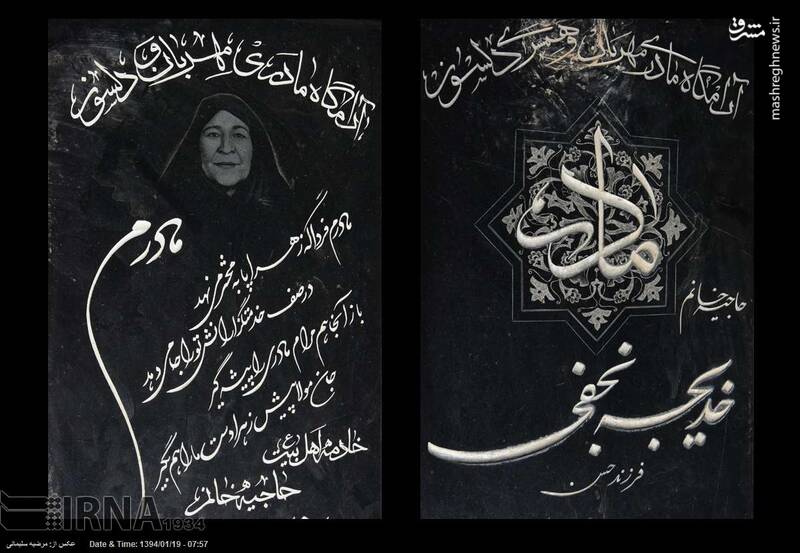 آرامگاه مادری مهربان و همسری دلسوز
مادرم
حاجیه خانم
خدیجه نجفی
فرزند حسن
آرامگاه مادری مهربان و دلسوز
مادرم
مادرم فردا که زهرا پا به محشر می نهد
در صف خدمتگزارانش تو را جا می دهد
باز آنجا هم مرام مادری را پیشه گیر
جان مولا پیش زهرا دست ما را هم بگیر
خادمه اهل بیت ع
حاجیه خانم
مشرق
mashreghnews.ir
IRNA
1934
عکس از: مرضیه سلیمانی
Date & Time: 1394/01/19 - 07:57